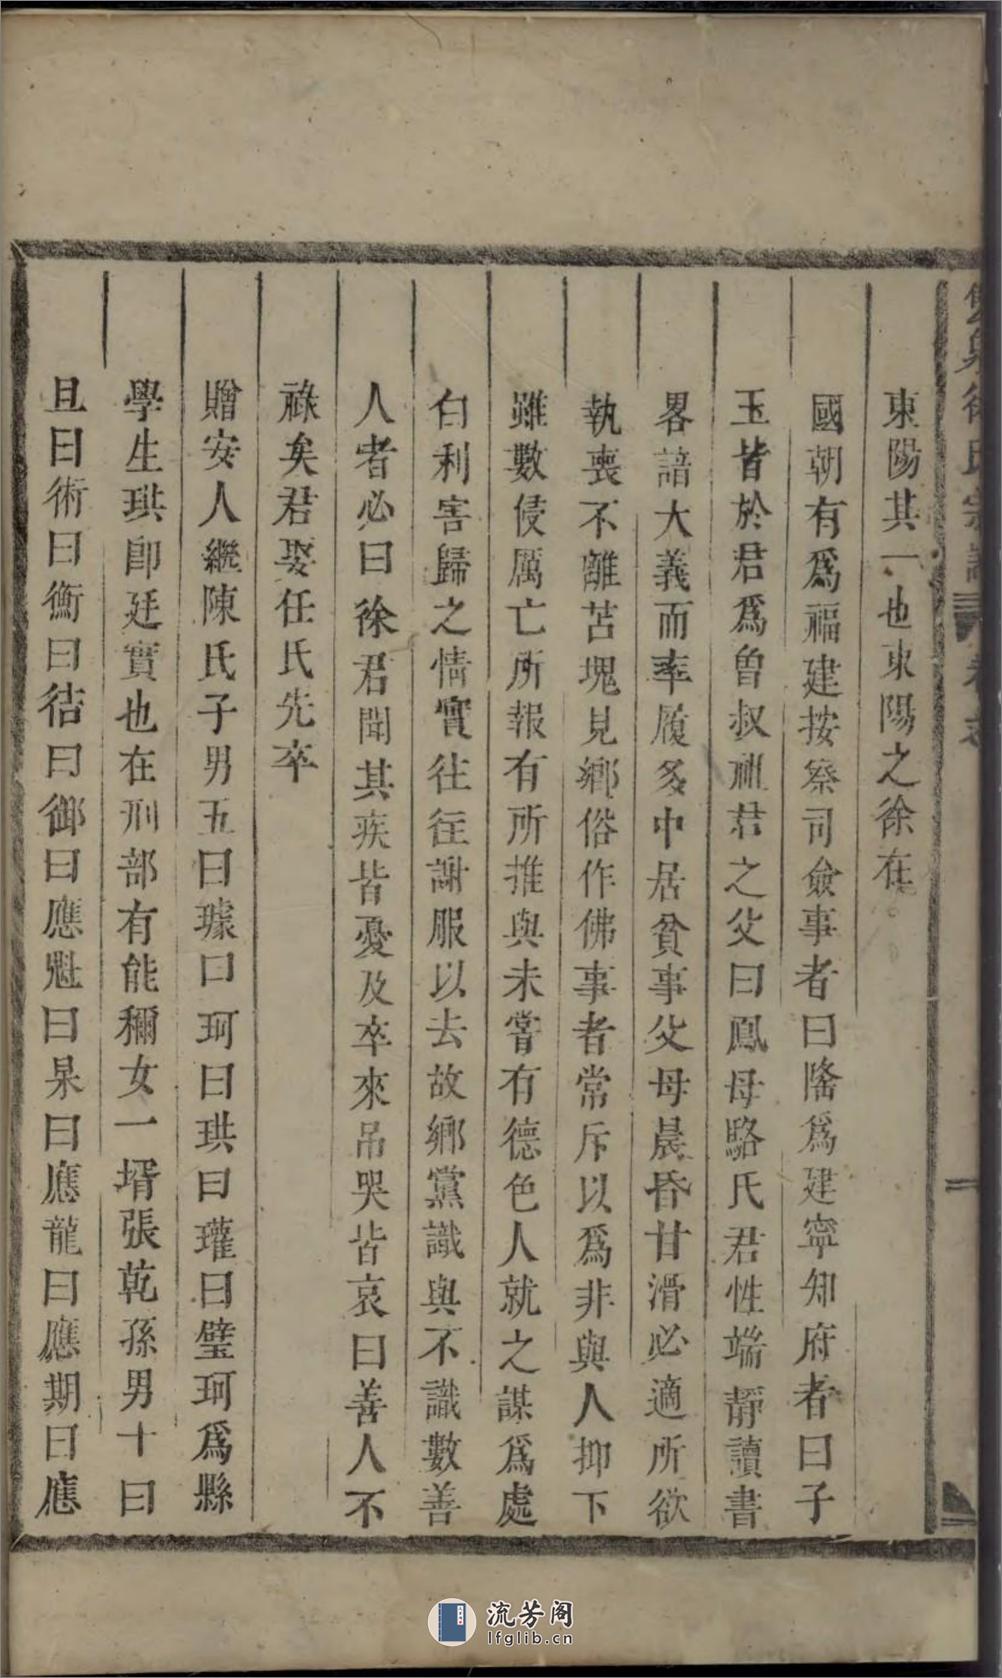 東陽其一也東陽之徐在
國朝有爲福建按察司僉事者曰隆爲建寧知府者曰子
玉皆於君爲曾叔祖君之父曰鳳母駱氏君性端靜讀書
畧諳大義而率履多中居貧事父母晨昏甘滑必適所欲
執喪不離苫塊見鄉俗作佛事者常斥以爲非與人抑下
雖數侵厲亡所報有所推與未嘗有德色人就之謀爲處
白利害歸之情實往往謝服以去故鄉黨識與不識數善
人者必曰徐君聞其疾皆憂及卒來吊哭皆哀曰善人不
祿矣君娶任氏先卒
贈安人繼陳氏子男五曰璩曰珂曰珙曰瓘曰璧珂爲縣
學生珙卽廷實也在刑部有能稱女一壻張乾孫男十曰
旦曰術曰衡曰𢓜曰御曰應魁曰杲曰應龍曰應期曰應
徐氏宗譜
流芳阁
lfglib.cn